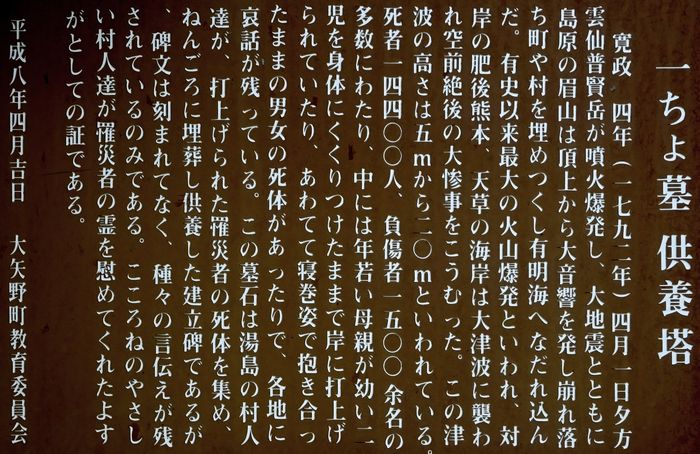 一ちょ墓 供養塔
寛政 四年（一七九二年）四月一日夕方
雲仙普賢岳が噴火爆発し、大地震とともに
島原の眉山は頂上から大音響を発し崩れ落
ち町や村を埋めつくし有明海へなだれ込ん
だ。有史以来最大の火山爆発といわれ、対
岸の肥後熊本、天草の海岸は大津波に襲わ
れ空前絶後の大惨事をこうむった。この津
波の高さは五mから二〇mといわれている。
死者一四四〇〇人、負傷者一五〇〇余名の
多数にわたり、中には年若い母親が幼い二
児を身体にくくりつけたままで岸に打上げ
られていたり、あわてて寝巻姿で抱き合っ
たままの男女の死体があったりで、各地に
哀話が残っている。この墓石は湯島の村人
達が、打上げられた罹災者の死体を集め、
ねんごろに埋葬し供養した建立碑であるが
、碑文は刻まれてなく、種々の言伝えが残
されているのみである。こころねのやさし
い村人達が罹災者の霊を慰めてくれたよす
がとしての証である。
平成八年四月吉日 大矢野町教育委員会